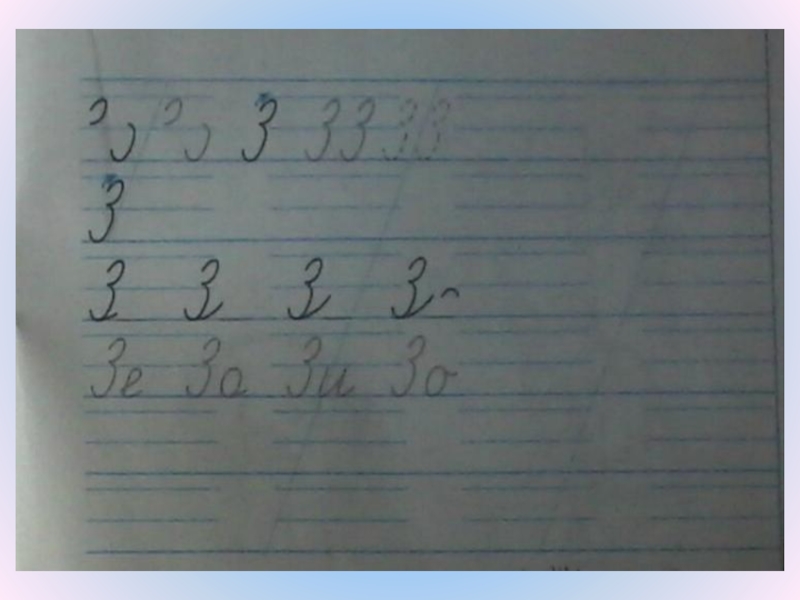 З З З З З
З
З З З З
Зе За Зи Зо